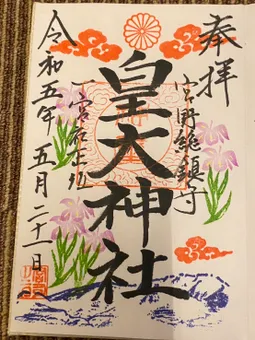 奉拝
宮野総鎮守
皇大神社
令和五年五月二十一日